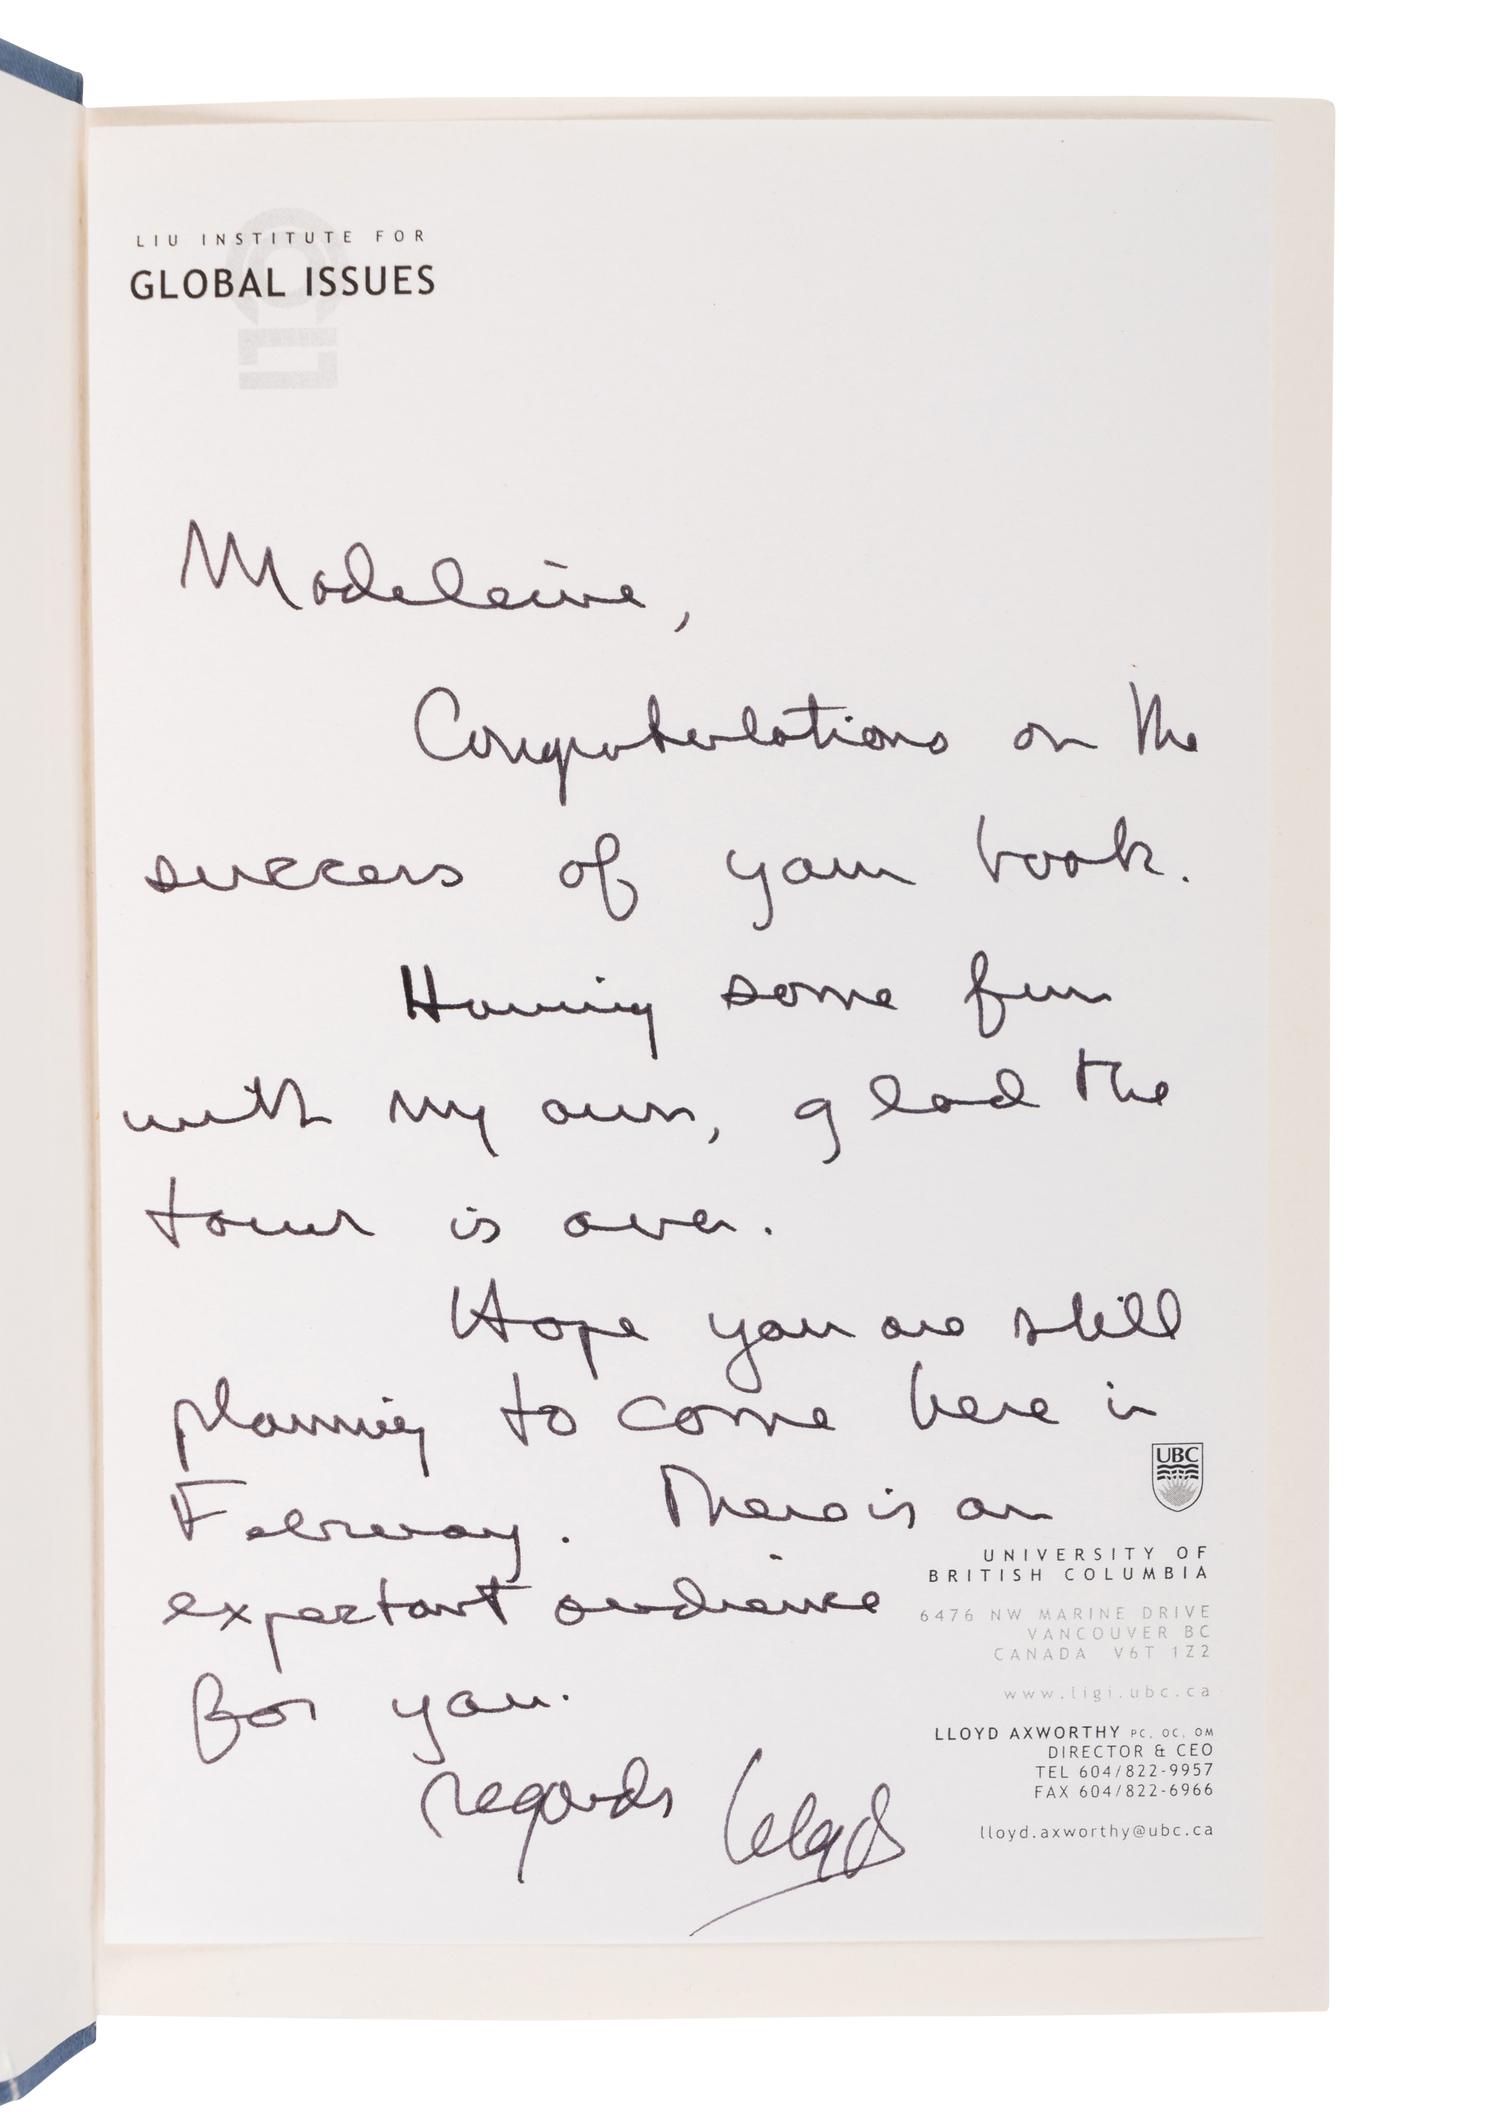 LIU INSTITUTE FOR
GLOBAL ISSUES
Madeleine,
Congratulations on the
success of your book.
Having some fun
with my own, glad the
tour is over.
Hope you are still
planning to come here in
February. There is an
expectant audience
for you.
regards Lloyd
UBC
UNIVERSITY OF
BRITISH COLUMBIA
6476 NW MARINE DRIVE
VANCOUVER BC
CANADA V6T 1Z2
www.ligi.ubc.ca
LLOYD AXWORTHY PC, OC, OM
DIRECTOR & CEO
TEL 604/822-9957
FAX 604/822-6966
lloyd.axworthy@ubc.ca